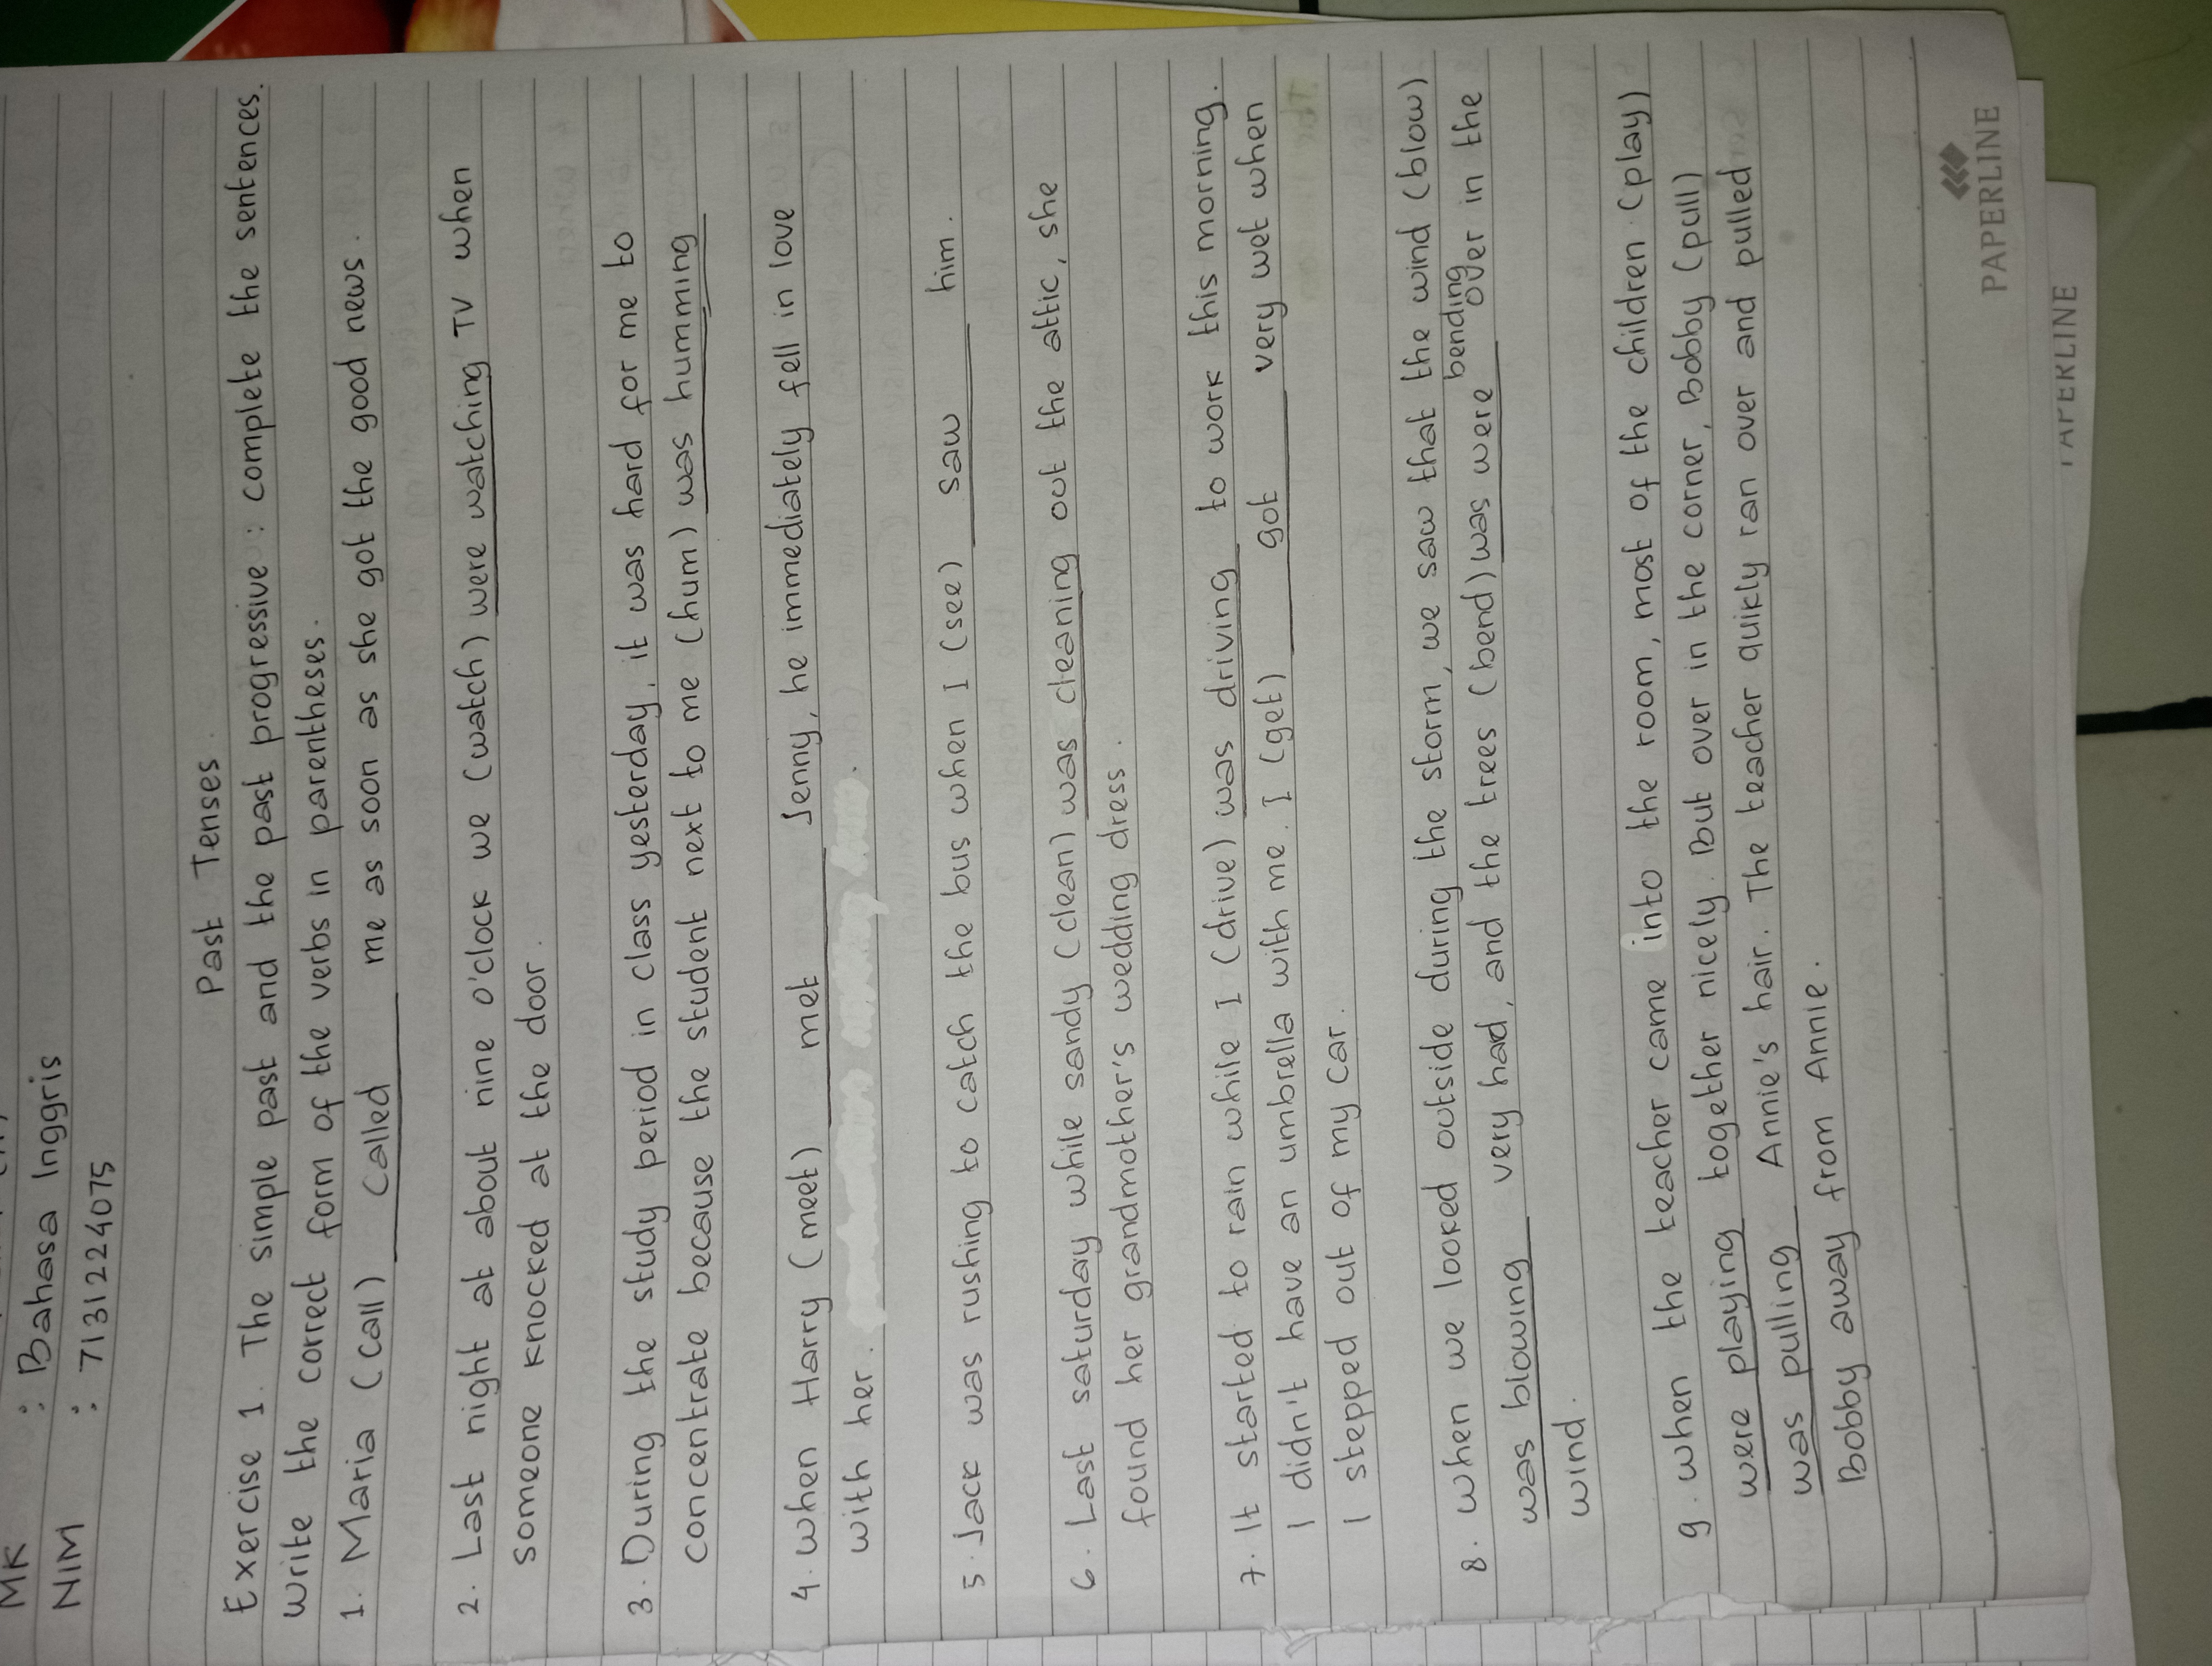 MK : Bahasa Inggris
NIM : 7131224075
Past Tenses.
Exercise 1. The simple past and the past progressive : complete the sentences.
write the correct form of the verbs in parentheses.
1. Maria (call) Called me as soon as she got the good news.
2. Last night at about nine o'clock we (watch) were watching TV when
someone knocked at the door.
3. During the study period in class yesterday, it was hard for me to
concentrate because the student next to me (hum) was humming
4. when Harry (meet) met Jenny, he immediately fell in love
with her.
5. Jack was rushing to catch the bus when I (see) saw him.
6. Last saturday while sandy (clean) was cleaning out the attic, she
found her grandmother's wedding dress.
7. It started to rain while I (drive) was driving to work this morning.
I didn't have an umbrella with me. I (get) got very wet when
I stepped out of my car.
8. when we looked outside during the storm, we saw that the wind (blow)
was blowing very had, and the trees (bend) was were bending over in the
wind.
9. when the teacher came into the room, most of the children (play)
were playing together nicely. But over in the corner, Bobby (pull)
was pulling Annie's hair. The teacher quikly ran over and pulled
Bobby away from Annie.
PAPERLINE
PAPERLINE